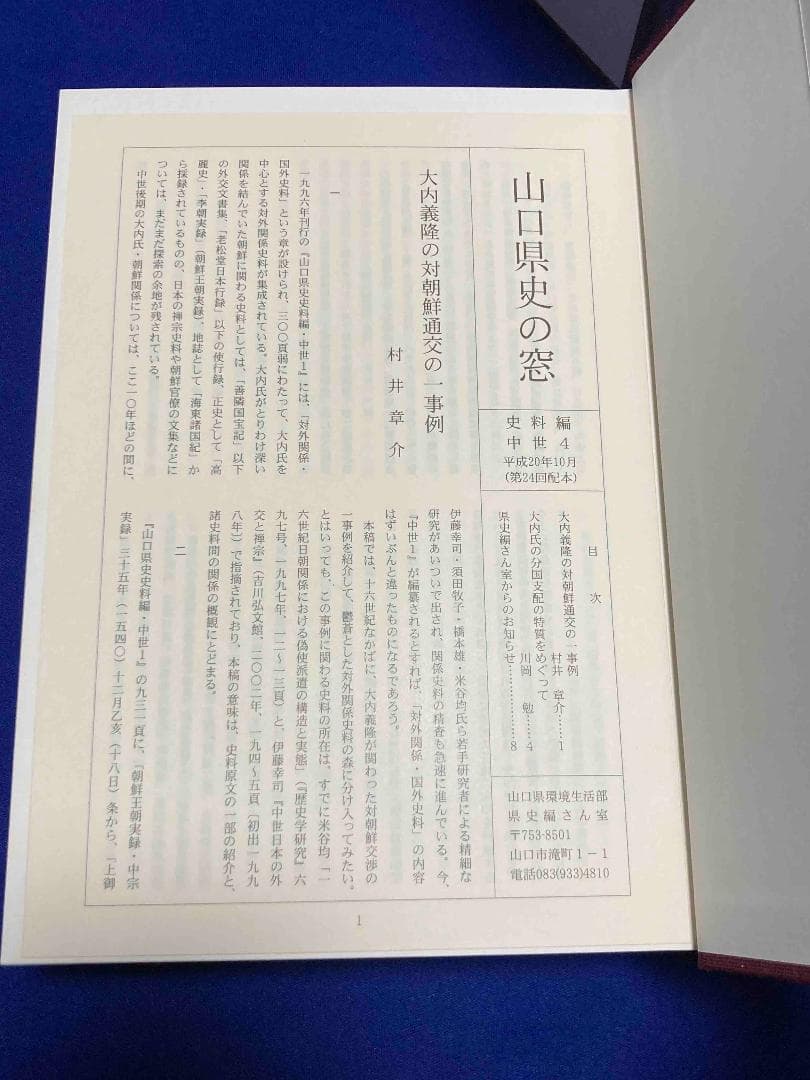 山口県史の窓
史料編
中世4
平成20年10月
(第24回配本)
目次
大内義隆の対朝鮮通交の一事例
村井章介……1
大内氏の分国支配の特質をめぐって
川岡勉……4
県史編さん室からのお知らせ………………8
山口県環境生活部
県史編さん室
〒753-8501
山口市滝町1－1
電話083(933)4810
大内義隆の対朝鮮通交の一事例
村井章介
一
一九九六年刊行の『山口県史史料編・中世1』には、「対外関係・
国外史料」という章が設けられ、三〇〇頁弱にわたって、大内氏を
中心とする対外関係史料が集成されている。大内氏がとりわけ深い
関係を結んでいた朝鮮に関わる史料としては、「善隣国宝記」以下
の外交文書集、「老松堂日本行録」以下の使行録、正史として「高
麗史」・「李朝実録」（朝鮮王朝実録）、地誌として「海東諸国紀」か
ら採録されているものの、日本の禅宗史料や朝鮮官僚の文集などに
ついては、まだまだ探索の余地が残されている。
中世後期の大内氏・朝鮮関係については、ここ一〇年ほどの間に、
伊藤幸司・須田牧子・橋本雄・米谷均氏ら若手研究者による精細な
研究があいついで出され、関係史料の精査も急速に進んでいる。今、
『中世1』が編纂されるとすれば、「対外関係・国外史料」の内容
はずいぶんと違ったものになるであろう。
本稿では、十六世紀なかばに、大内義隆が関わった対朝鮮交渉の
一事例を紹介して、鬱蒼とした対外関係史料の森に分け入ってみたい。
とはいっても、この事例に関わる史料の所在は、すでに米谷均「一
六世紀日朝関係における偽使派遣の構造と実態」（『歴史学研究』六
九七号、一九九七年、一二～一三頁）と、伊藤幸司『中世日本の外
交と禅宗』（吉川弘文館、二〇〇二年、一九四～五頁〔初出一九九
八年〕）で指摘されており、本稿の意味は、史料原文の一部の紹介と、
諸史料間の関係の概観にとどまる。
二
『山口県史史料編・中世1』の九三一頁に、「朝鮮王朝実録・中宗
実録」三十五年（一五四〇）十二月乙亥（十八日）条から、「上御
1